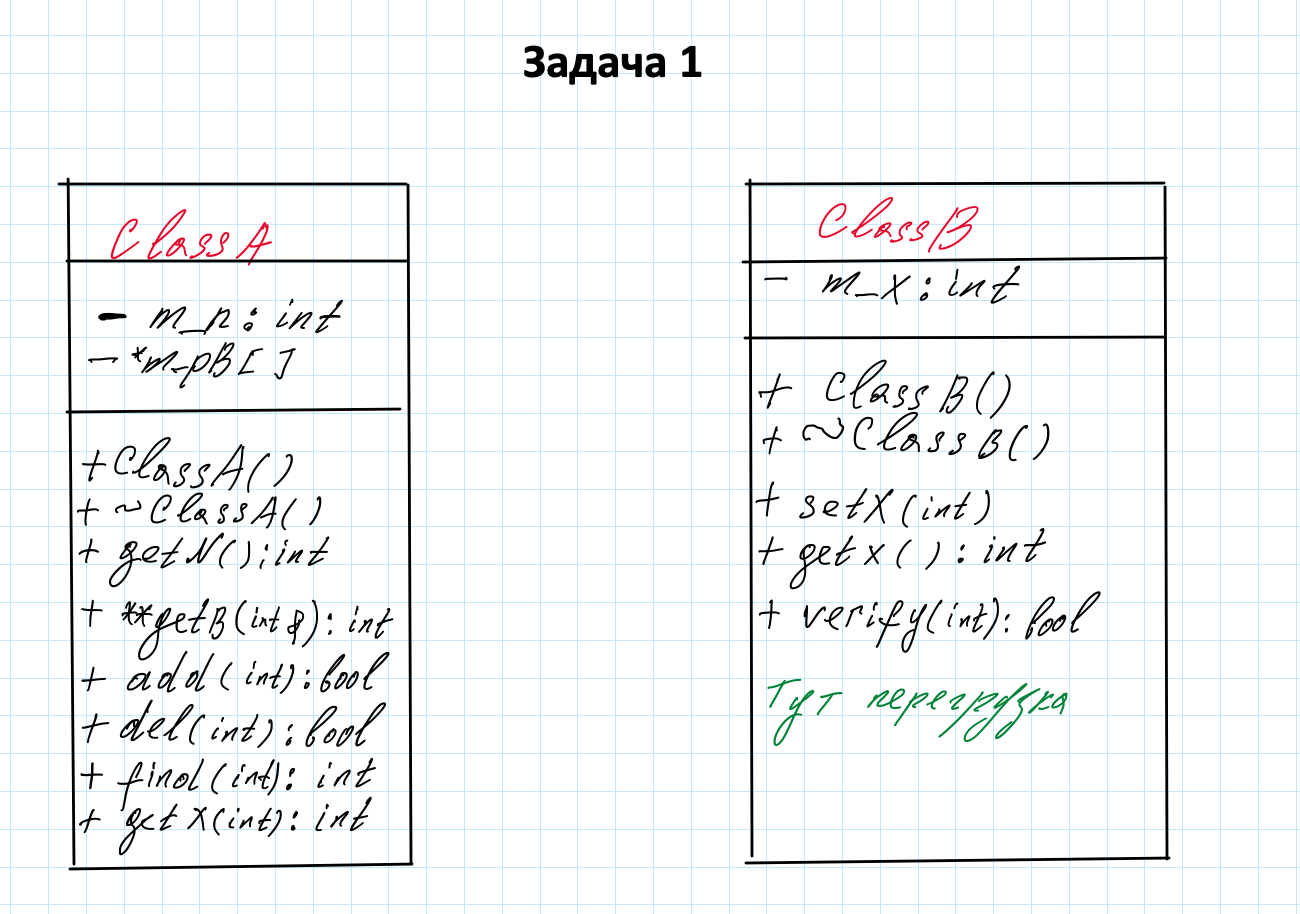 Задача 1
Class A
- m_n : int
- *m_pB[ ]
+ ClassA()
+ ~ClassA()
+ getN() : int
+ **getB(int &) : int
+ add(int) : bool
+ del(int) : bool
+ find(int) : int
+ getX(int) : int
Class B
- m_x : int
+ ClassB()
+ ~ClassB()
+ setX(int)
+ getX() : int
+ verify(int) : bool
Тут перегрузка